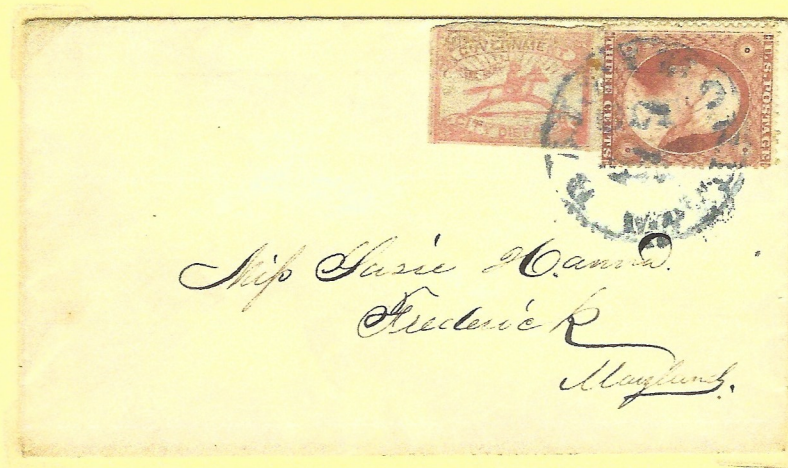 GOVERNMENT
CITY DISPATCH
U.S. POSTAGE
THREE CENTS
BALTIMORE
Miss Susie Hanna.
Frederick
Maryland.